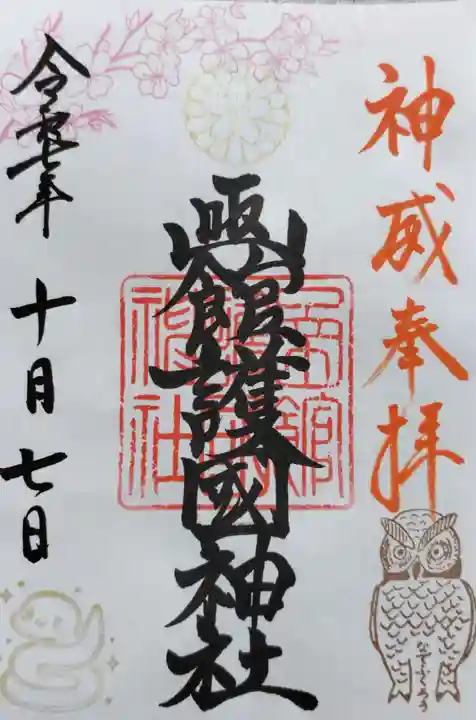 神威奉拝
凾館護國神社
令和七年
十月七日
函館護國神社
なでふくろう